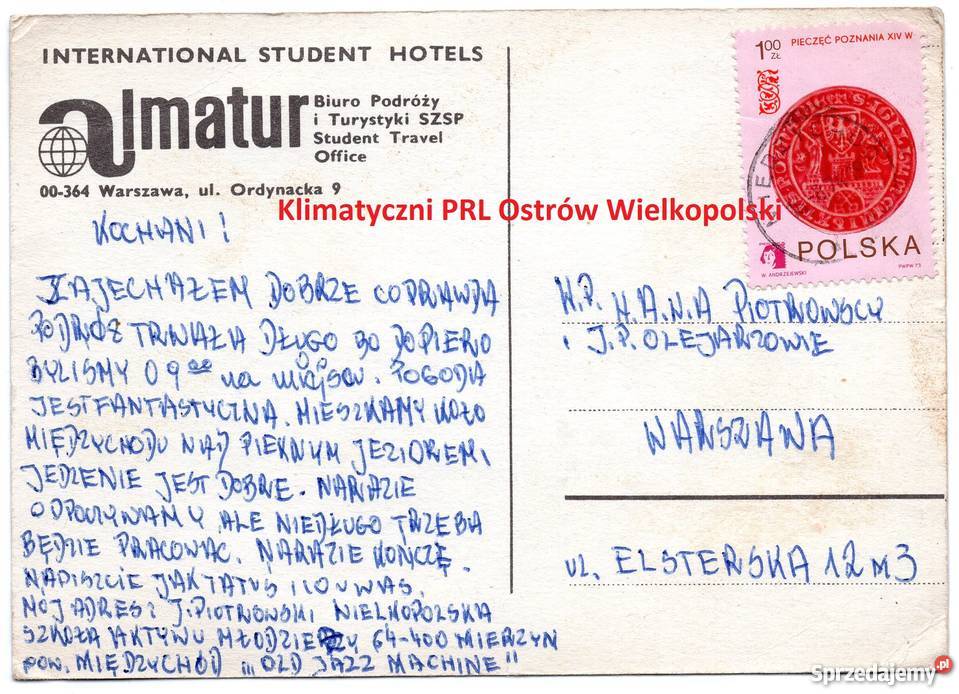 INTERNATIONAL STUDENT HOTELS
almatur
Biuro Podróży
i Turystyki SZSP
Student Travel
Office
00-364 Warszawa, ul. Ordynacka 9
Klimatyczni PRL Ostrów Wielkopolski
KOCHANI!
ZAJECHAŁEM DOBRZE COPRAWDA
PODRÓŻ TRWAŁA DŁUGO BO DOPIERO
BYLISMY O 9 00 na miejscu. POGODA
JEST FANTASTYCZNA. MIESZKAMY KOŁO
MIĘDZYCHODU NAD PIEKNYM JEZIOREM i
JEDZENIE JEST DOBRE. NARAZIE
ODPOCZYWAMY ALE NIEDŁUGO TRZEBA
BĘDZIE PRACOWAC. NARAZIE KOŃCZĘ.
NAPISZCIE JAK TATUS I CO U WAS.
MOJ ADRES: J.PIOTROWSKI WIELKOPOLSKA
SZKOŁA AKTYWU MŁODZIEŻY 64-400 MIERZYN
POW. MIĘDZYCHÓD „OLD JAZZ MACHINE"
1 00 ZŁ
PIECZĘĆ POZNANIA XIV W
POLSKA
W. ANDRZEJEWSKI
PWPW 73
W.P. H.A.N.i A PIOTROWSCY
i J.P. OLEJARZOWIE
WARSZAWA
ul. ELSTERSKA 12 m 3
Sprzedajemy.pl